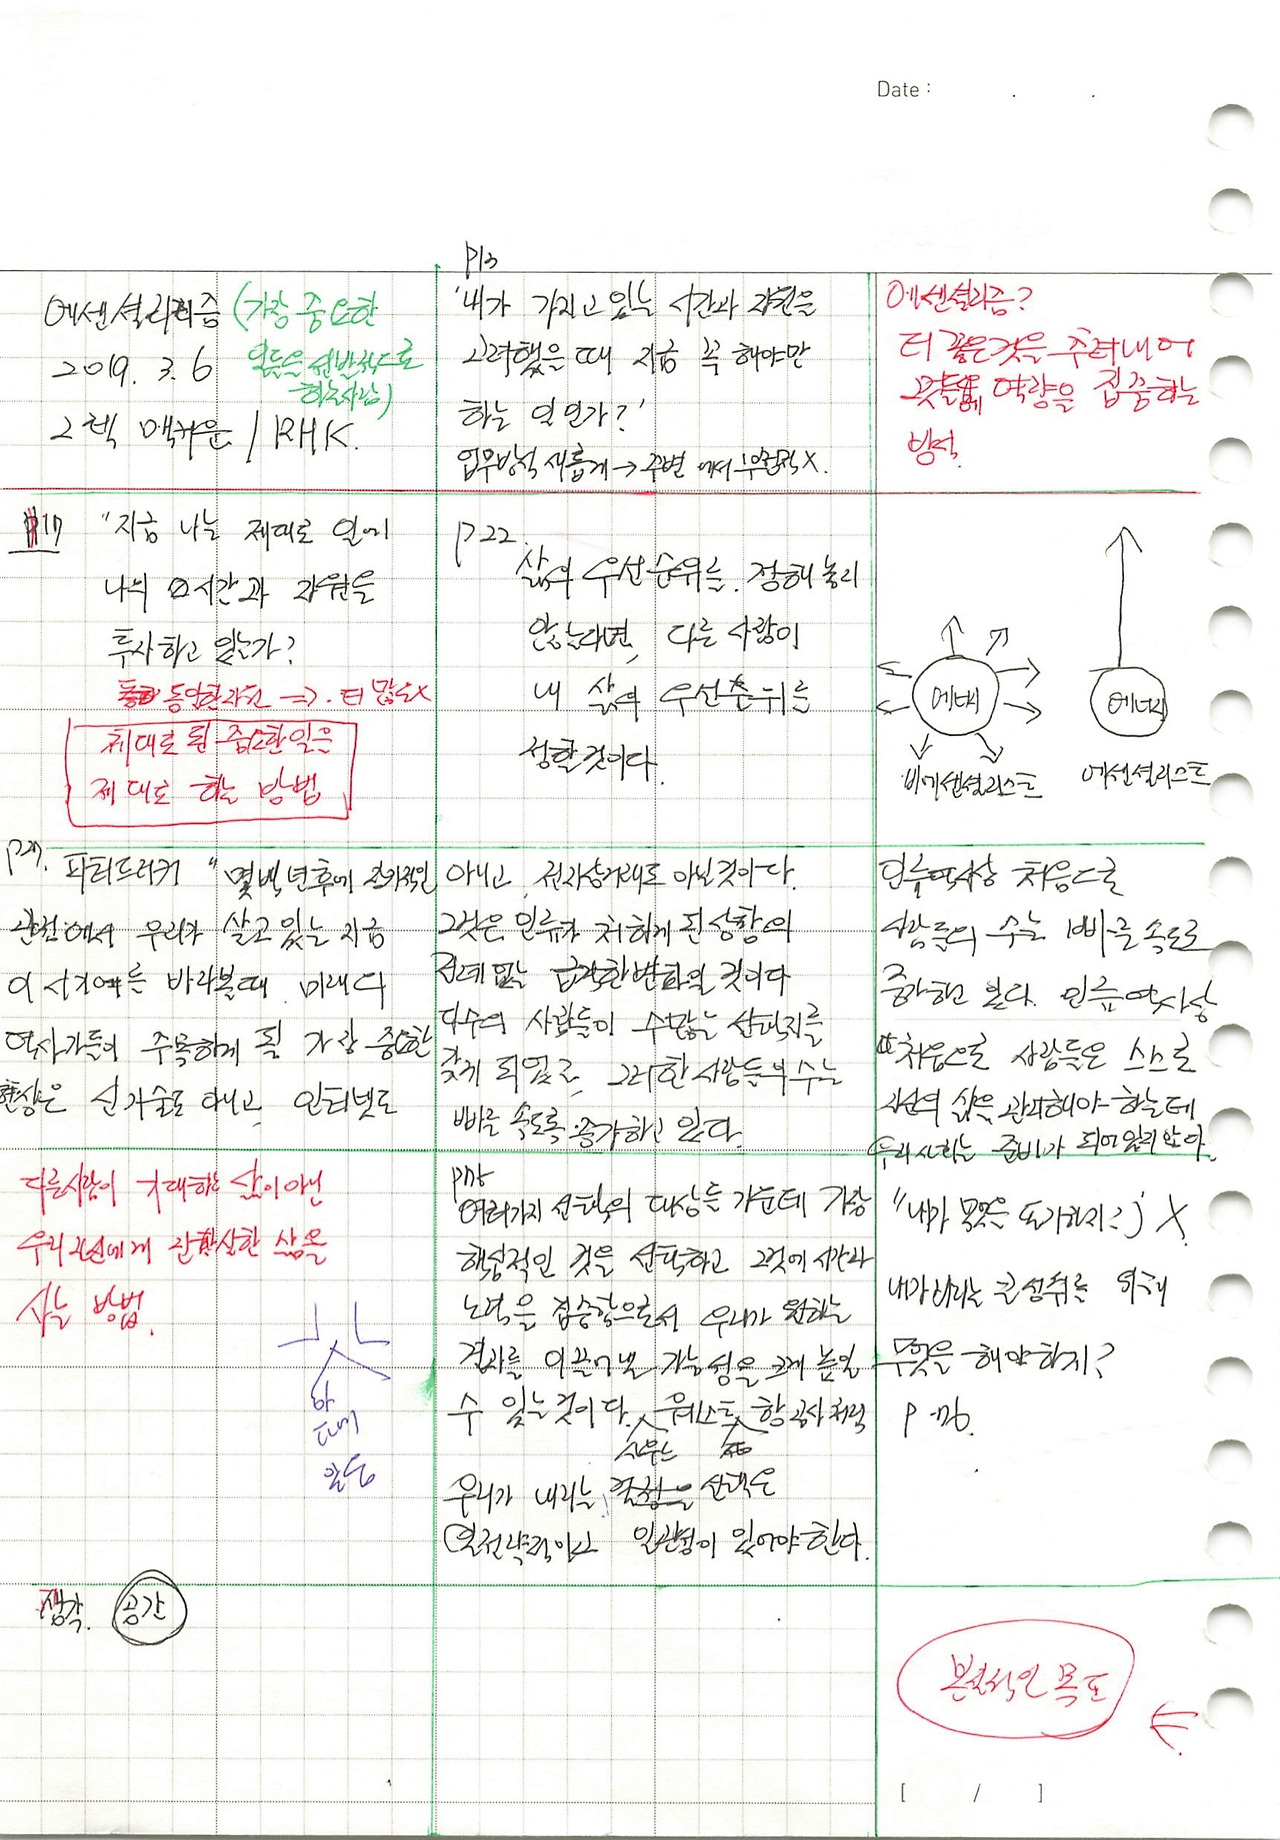 Date : . .
에센셜리즘 (가장 중요한
2019. 3. 6 일들을 선별적으로
하는사람)
그렉 맥커운 / RHK.
p13
'내가 가지고 있는 시간과 자원을
고려했을 때 지금 꼭 해야만
하는 일인가?'
업무방식 새롭게 → 주변에서 부정적 X.
에센셜리즘?
더 깊은것을 추려내어
그것들에 역량을 집중하는
방식.
p17 "지금 나는 제대로 일에
나의 시간과 자원을
투자하고 있는가?
동일한자원 ⇒. 더 많은X
제대로 된 중요한일을
제대로 하는 방법
p22.
삶의 우선순위를 정해놓지
않는다면, 다른 사람이
내 삶의 우선순위를
정할것이다.
에너지
에너지
비에센셜리스트 에센셜리스트
p27. 피터드러커 "몇백년후에 장기적인
관점에서 우리가 살고있는 지금
이 시기를 바라볼때 미래의
역사가들이 주목하게 될 가장 중요한
현상은 신기술도 아니고, 인터넷도
아니고, 전자상거래도 아닐것이다.
그것은 인류가 처하게 된 상황의
전례없는 급격한변화일 것이다
다수의 사람들이 수많은 선택지를
갖게 되었고, 그러한 사람들의 수는
빠른 속도로 증가하고 있다.
인류역사상 처음으로
사람들의 수는 빠른속도로
증가하고 있다. 인류역사상
처음으로 사람들은 스스로
자신의 삶을 관리해야 하는데
우리사회는 준비가 되어있지 않다.
다른사람이 기대하는 삶이아닌
우리 자신에게 진실한 삶을
사는 방법.
여러가지 선택의 대상들 가운데 가장
핵심적인 것을 선택하고 그것에 시간과
노력을 집중함으로서 우리가 원하는
결과를 이끌어낼 가능성을 크게 높일
수 있는것이다. 사우스웨스트 항공사처럼
우리가 내리는 선택은
전략적이고 일관성이 있어야한다.
"내가 무엇을 포기하지?" X
내가바라는 큰성취를 위해
무엇을 해야하지?
생각. 공간
본질적인 목표
[ / ]